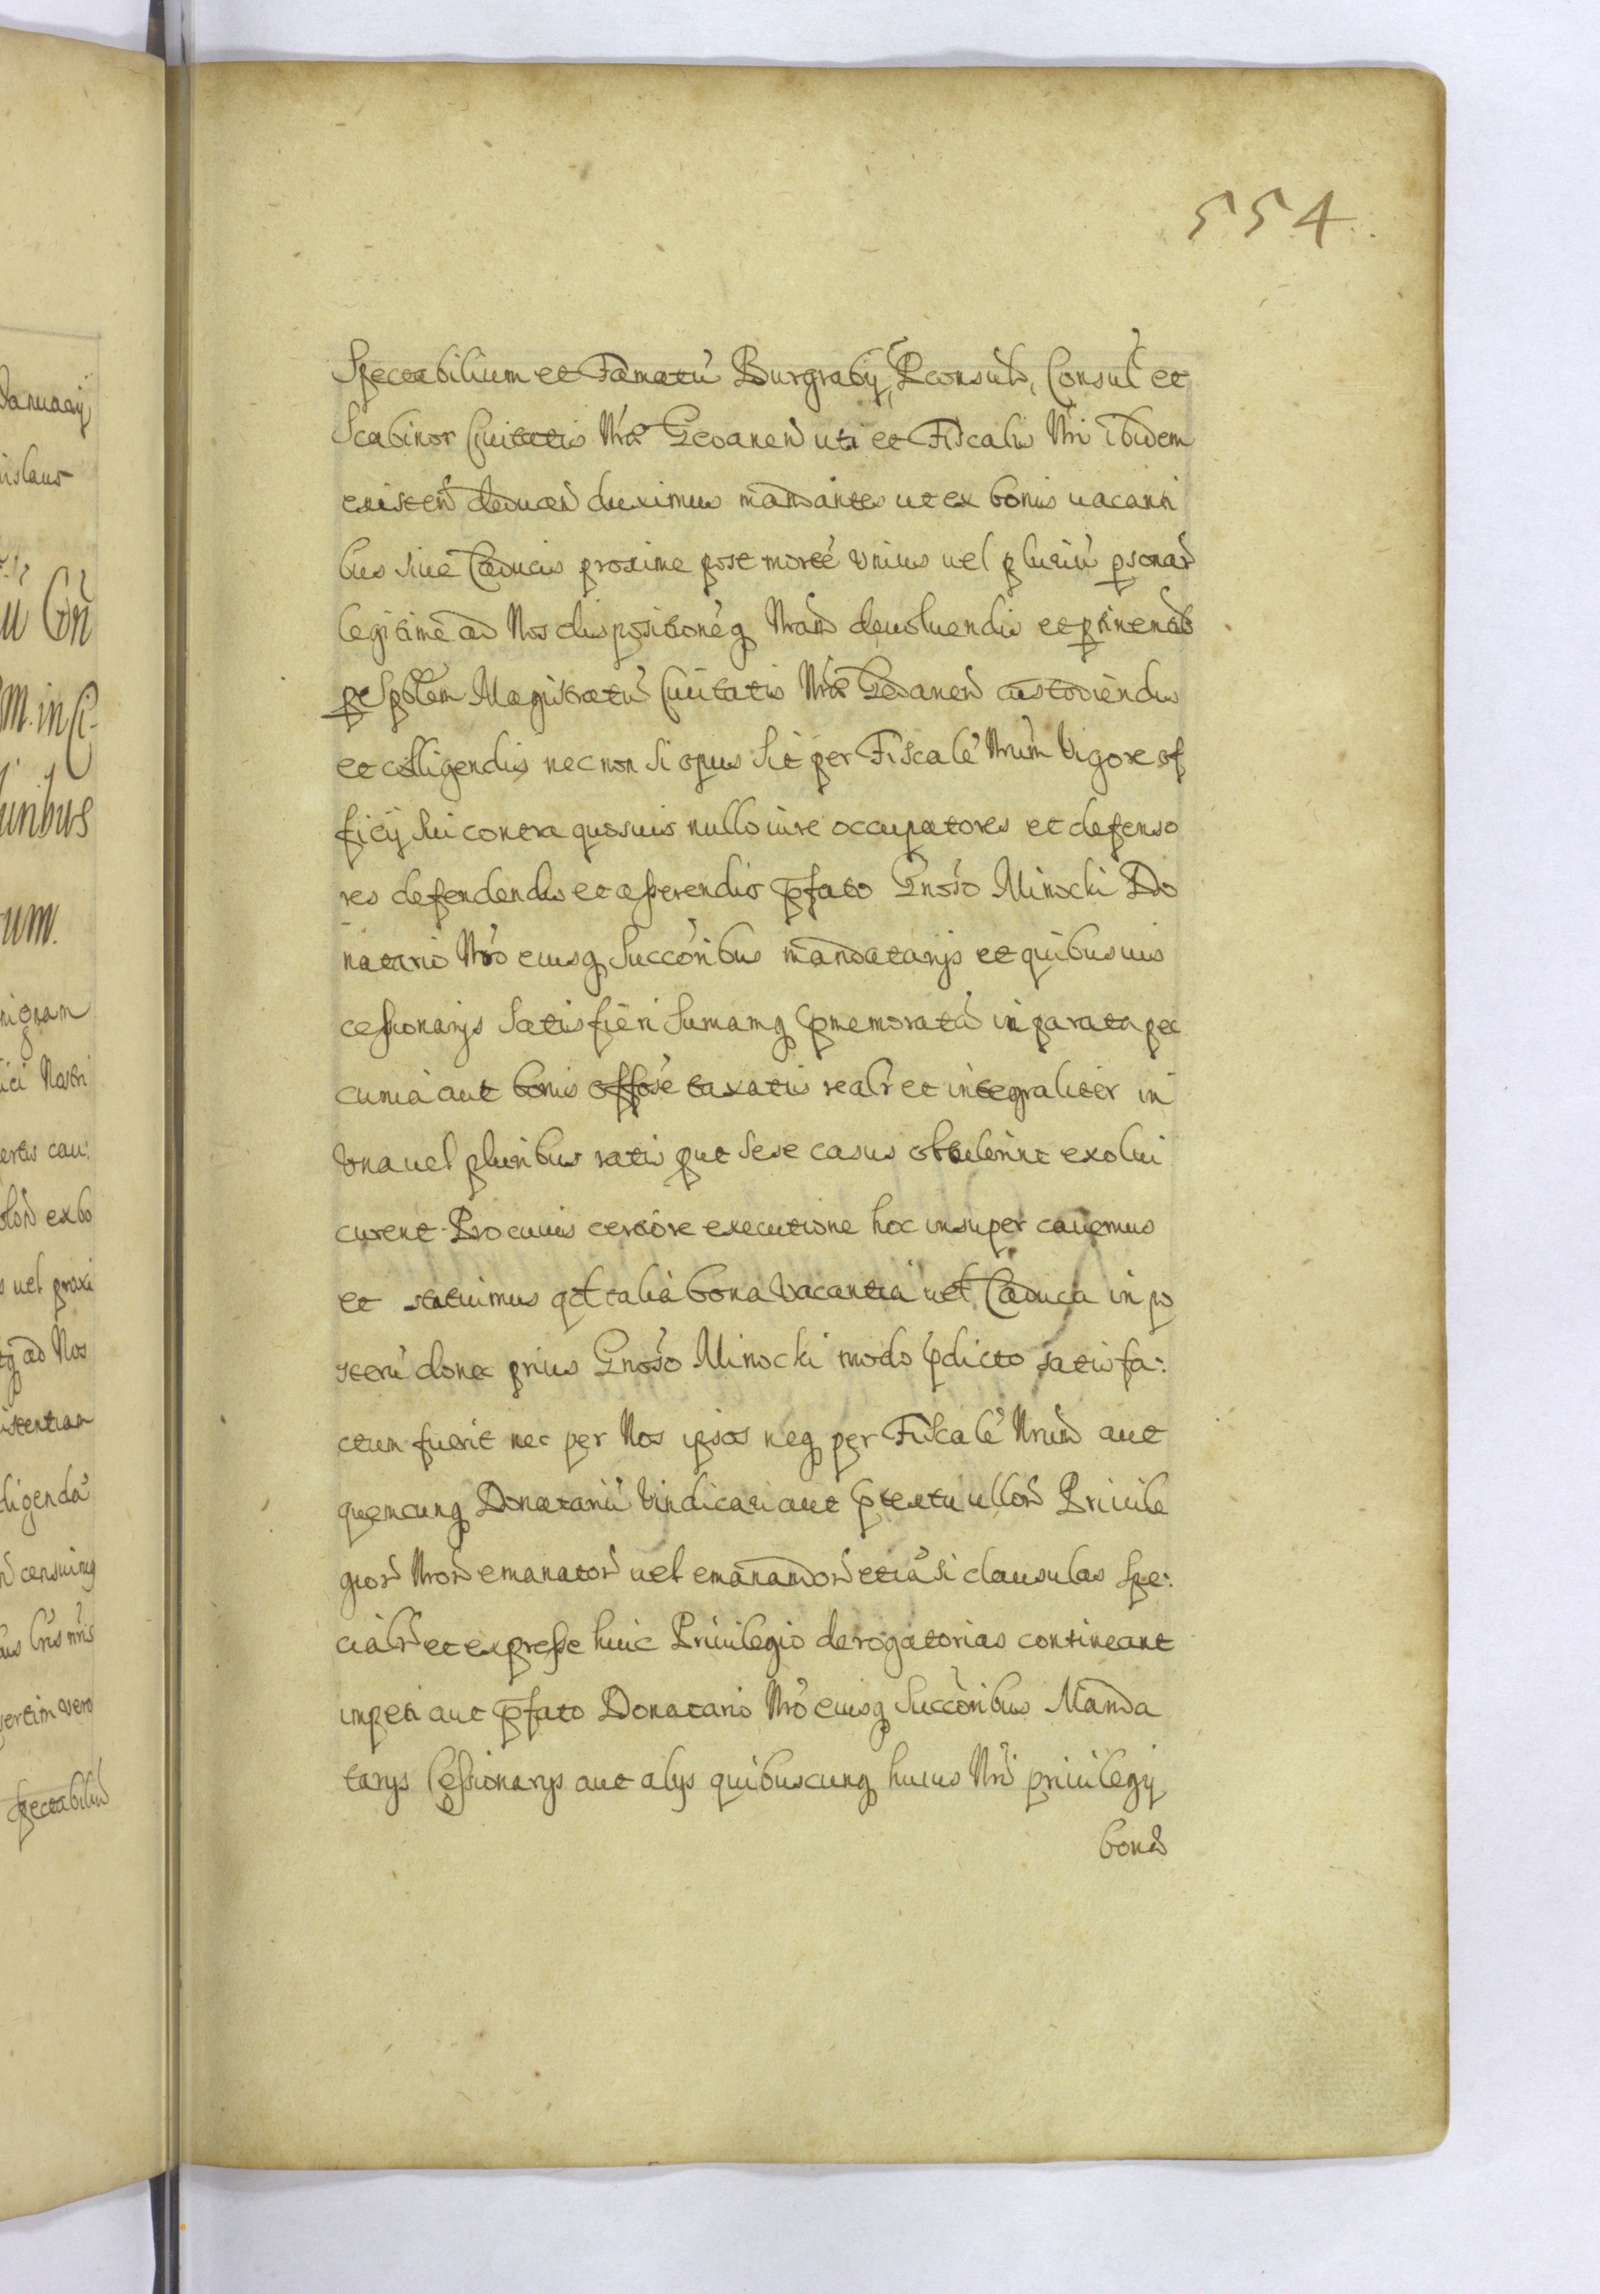 554
Spectabilium et Famatũ Burgrabij, Pconsulũ, Consul et
Scabinor Civitatis Nrae Gedaneñ uti et Fiscalis Nri ibidem
existeñ deducẽn duximus mandantes ut ex bonis vacanti
bus sive Caducis proxime post mortẽ Unius vel pluriũ psonar
legitimè ad Nos dispositionẽq Nram devoluendis et ptinendis
pe Spblem Magistratũ Civitatis Nrae Gedaneñ custodiendis
et colligendis nec non si opus sit per Fiscalẽ Nrum Vigore of
ficij sui contra quosuis nullo iure occupatores et defenso
res defendendis et asserendis pfato Gnoso Minocki Do
natario Nro eiusq Succoribus mandatarijs et quibusuis
cessionarijs satisfieri Sumamq pmemoratã in parata pec
cunia aut bonis taxatis realr et integraliter in
Una vel pluribus ratis put sese casus obtulerint exolui
curent. Pro cuius certiore executione hoc insuper cavemus
et statuimus qd talia bona Vacantia vel Caduca in po
sterũ donec prius Gnoso Minocki modo pdicto satisfa:
ctum fuerit nec per Nos ipsos neq per Fiscalẽ Nrum aut
quemcunq Donatariũ Vindicari aut ptextu ullor Privile
gior Nror emanator vel emanandor etiã si clausulas Spe:
cialr et expresse huic Privilegio derogatorias contineant
impeti aut pfato Donatario Nro eiusq Succoribus Manda
tarijs Cessionarijs aut alijs quibuscunq huius Nri privilegij
bona